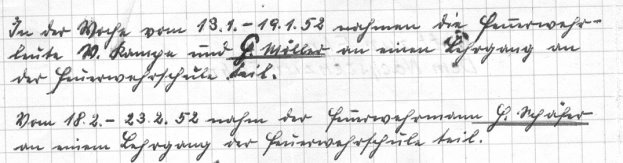 In der Woche vom 13.1. – 19.1.52 nahmen die Feuerwehr-
leute W. Kampe und G. Möller an einen Lehrgang an
der Feuerwehrschule teil.
Vom 18.2. – 23.2.52 nahm der Feuerwehrmann H. Schäfer
an einem Lehrgang der Feuerwehrschule teil.